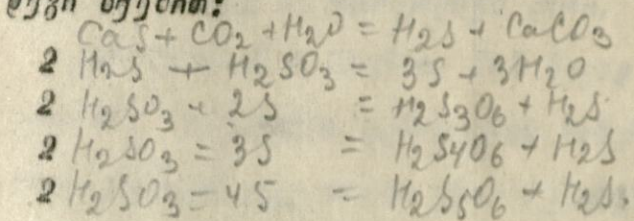 CaS + CO2 + H2O = H2S + CaCO3
2 H2S + H2SO3 = 3S + 3H2O
2 H2SO3 + 2S = H2S3O6 + H2S
2 H2SO3 = 3S = H2S4O6 + H2S
2 H2SO3 = 4S = H2S5O6 + H2S.